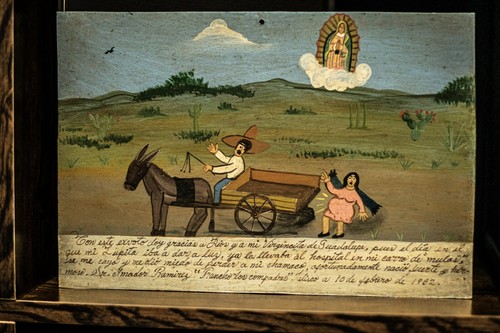 Con este exvoto doy gracias a Dios y a mi Virgencita de Guadalupe, pues el día en el
que mi Lupita iba a dar a luz, ya la llevaba al hospital en mi carro de mulas
se me cayó y sentí miedo de perder a mi chamaco, afortunadamente nació fuerte y her-
moso. Sr. Amador Ramírez "Rancho los compadres" Jalisco a 10 de febrero de 1962.